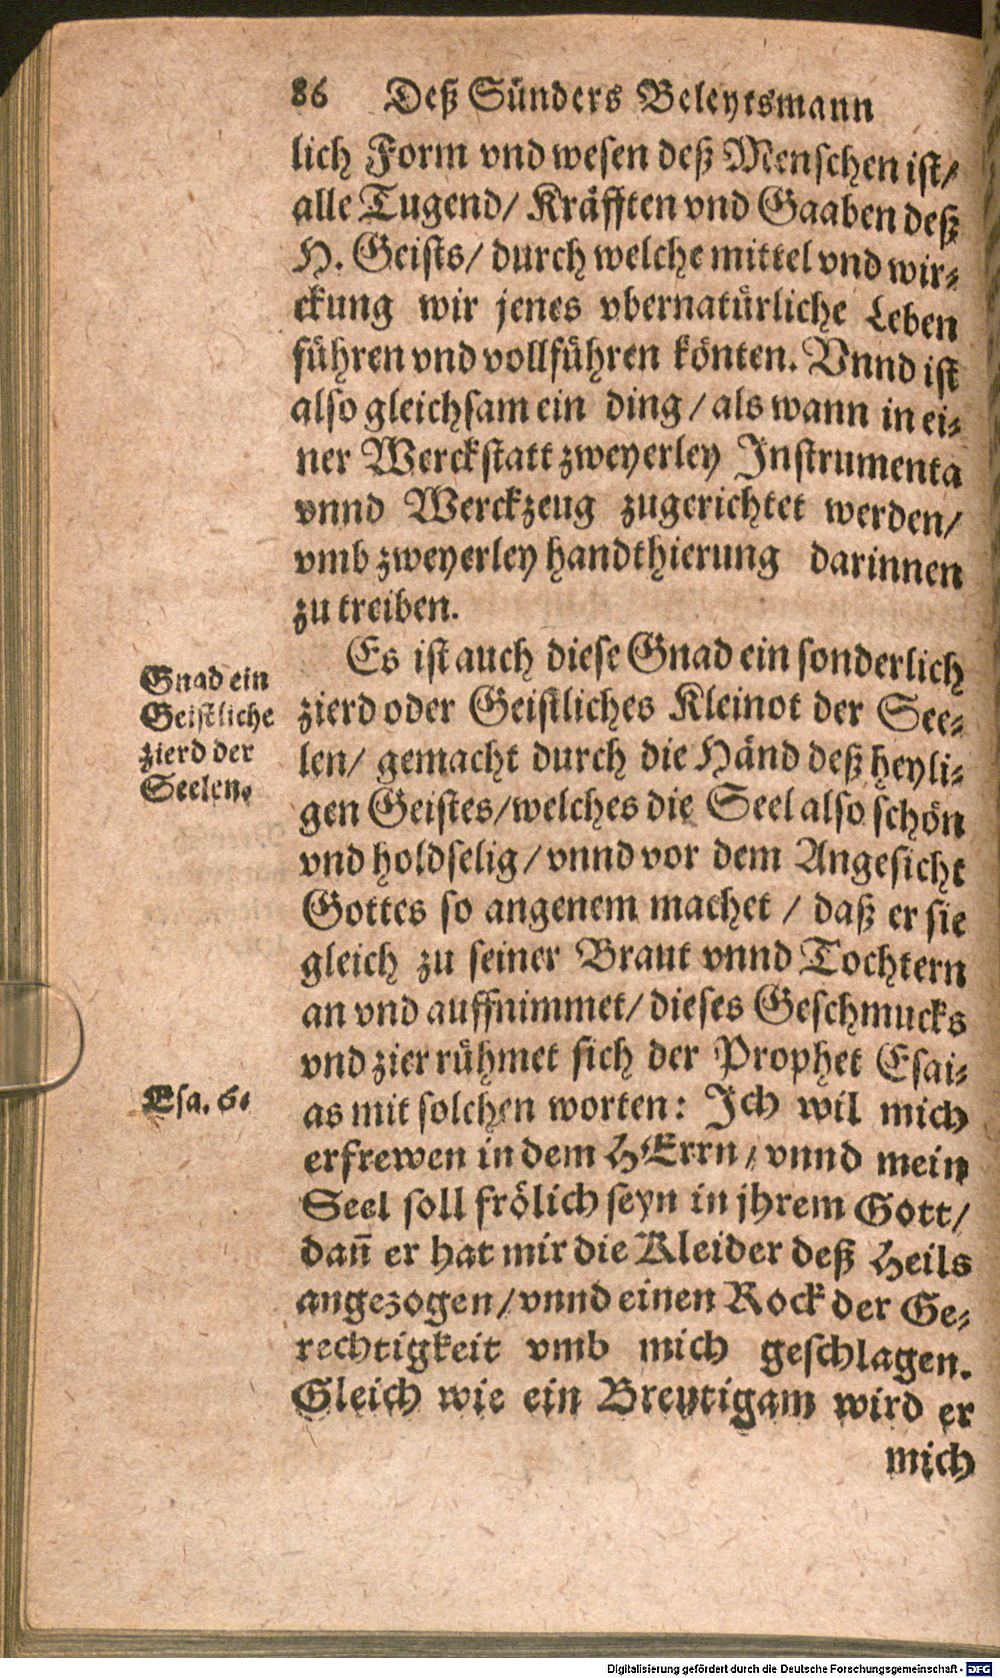 86 Deß Sünders Beleytsmann
lich Form vnd wesen deß Menschen ist/
alle Tugend/ Kräfften vnd Gaaben deß
H. Geists/ durch welche mittel vnd wir-
ckung wir jenes vbernatürliche Leben
führen vnd vollführen könten. Vnnd ist
also gleichsam ein ding/ als wann in ei-
ner Werckstatt zweyerley Instrumenta
vnnd Werckzeug zugerichtet werden/
vmb zweyerley handthierung darinnen
zu treiben.
Es ist auch diese Gnad ein sonderlich
zierd oder Geistliches Kleinot der See-
len/ gemacht durch die Händ deß heyli-
gen Geistes/ welches die Seel also schön
vnd holdselig/ vnnd vor dem Angesicht
Gottes so angenem machet / daß er sie
gleich zu seiner Braut vnnd Tochtern
an vnd auffnimmet/ dieses Geschmucks
vnd zier rühmet sich der Prophet Esai-
as mit solchen worten: Ich wil mich
erfrewen in dem HErrn/ vnnd mein
Seel soll frölich seyn in jhrem Gott/
dann̄ er hat mir die Kleider deß Heils
angezogen/ vnnd einen Rock der Ge-
rechtigkeit vmb mich geschlagen.
Gleich wie ein Breytigam wird er
mich
Gnad ein
Geistliche
zierd der
Seelen.
Esa. 6.
Digitalisierung gefördert durch die Deutsche Forschungsgemeinschaft - DFG